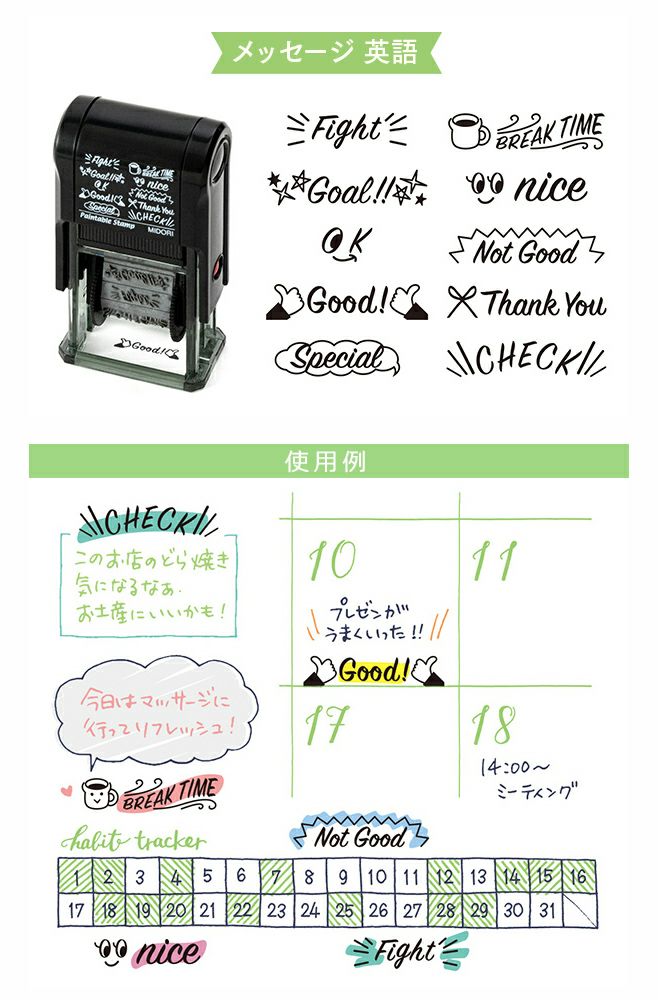 メッセージ 英語
Fight
BREAK TIME
Goal!!
nice
OK
Not Good
Good!
Thank You
Special
CHECK
Fight
BREAK TIME
Goal!!
nice
OK
Not Good
Good!
Thank You
Special
CHECK
Paintable Stamp
MIDORI
Good!
使用例
CHECK
このお店のどら焼き
気になるなぁ.
お土産にいいかも!
10
11
プレゼンが
うまくいった!!
Good!
17
18
14:00〜
ミーティング
今日はマッサージに
行ってリフレッシュ!
BREAK TIME
habit tracker
Not Good
1 2 3 4 5 6 7 8 9 10 11 12 13 14 15 16
17 18 19 20 21 22 23 24 25 26 27 28 29 30 31
nice
Fight